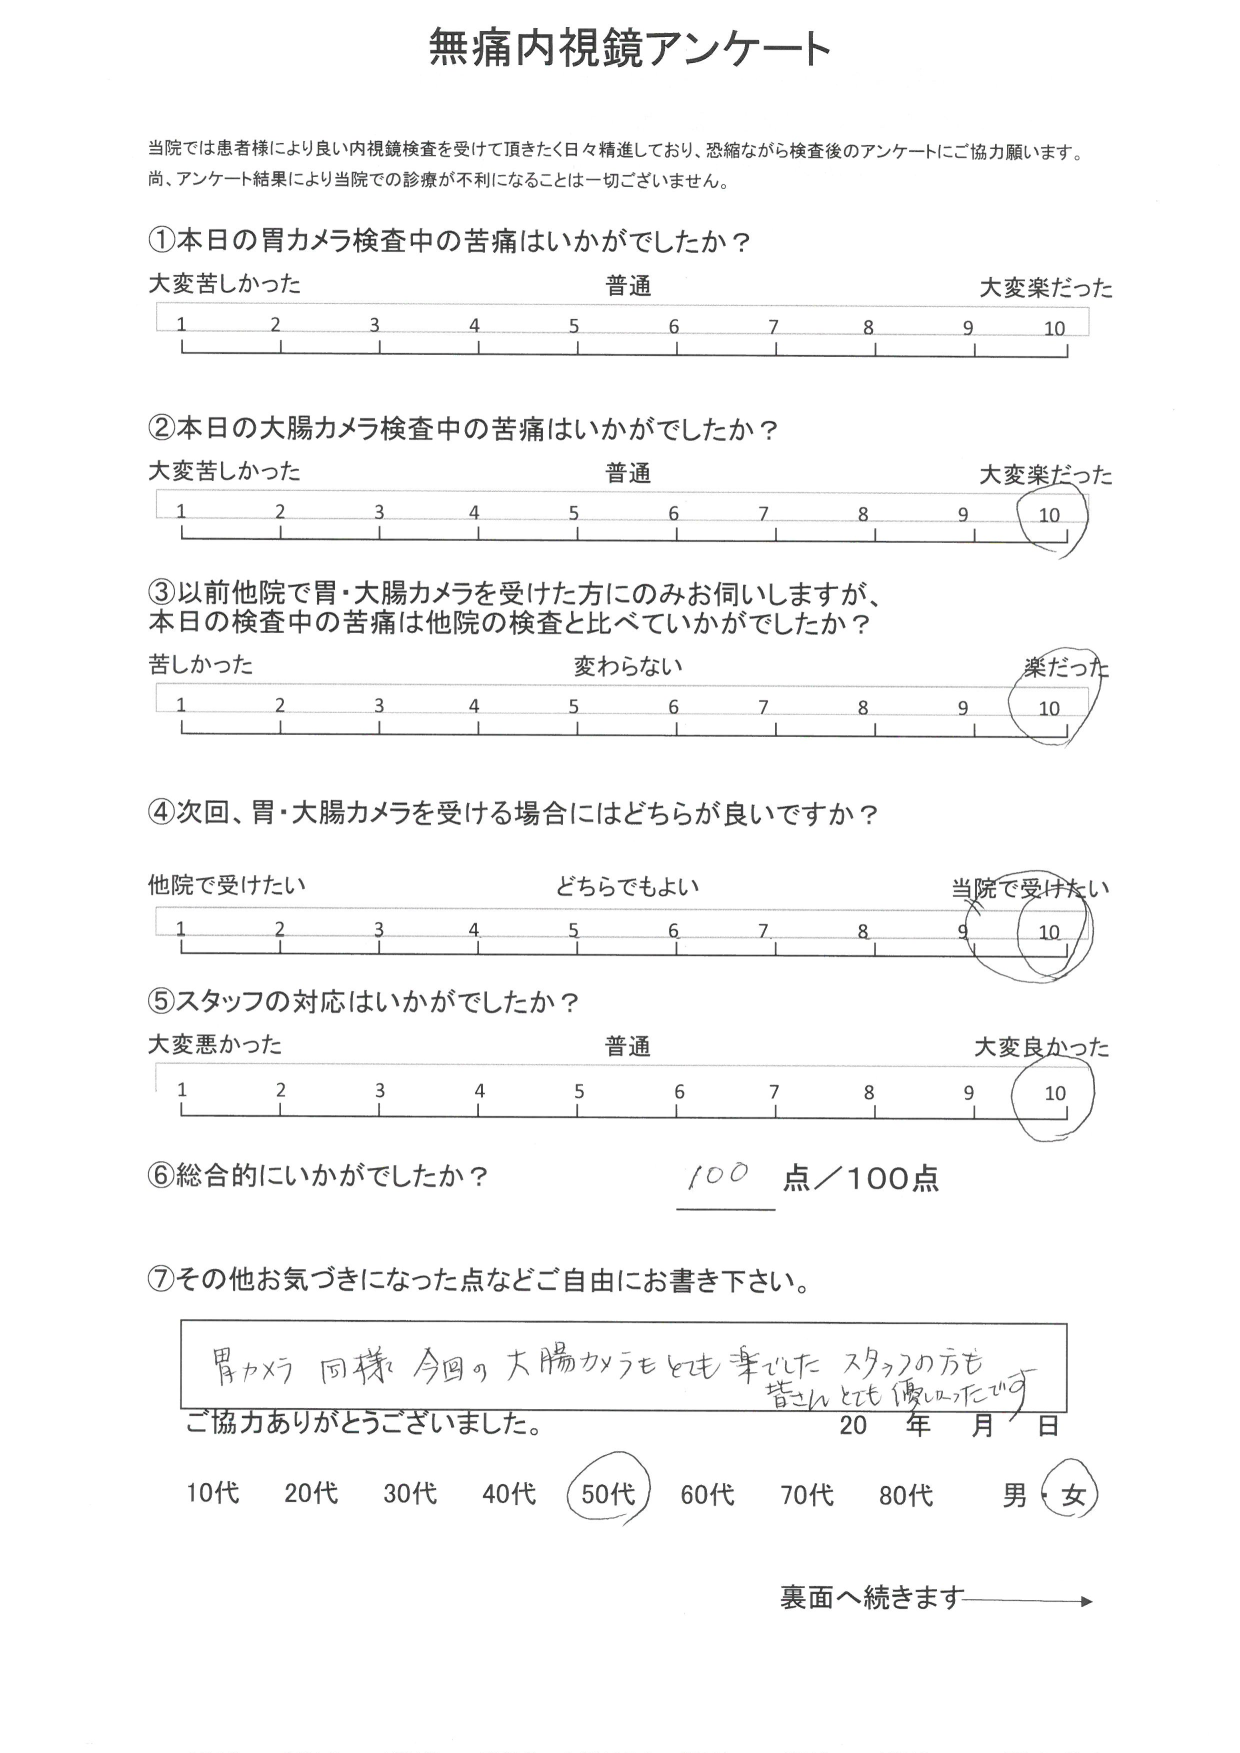 無痛内視鏡アンケート
当院では患者様により良い内視鏡検査を受けて頂きたく日々精進しており、恐縮ながら検査後のアンケートにご協力願います。
尚、アンケート結果により当院での診療が不利になることは一切ございません。
①本日の胃カメラ検査中の苦痛はいかがでしたか？
大変苦しかった 普通 大変楽だった
1 2 3 4 5 6 7 8 9 10
②本日の大腸カメラ検査中の苦痛はいかがでしたか？
大変苦しかった 普通 大変楽だった
1 2 3 4 5 6 7 8 9 10
③以前他院で胃・大腸カメラを受けた方にのみお伺いしますが、
本日の検査中の苦痛は他院の検査と比べていかがでしたか？
苦しかった 変わらない 楽だった
1 2 3 4 5 6 7 8 9 10
④次回、胃・大腸カメラを受ける場合にはどちらが良いですか？
他院で受けたい どちらでもよい 当院で受けたい
1 2 3 4 5 6 7 8 9 10
⑤スタッフの対応はいかがでしたか？
大変悪かった 普通 大変良かった
1 2 3 4 5 6 7 8 9 10
⑥総合的にいかがでしたか？ 100 点／100点
⑦その他お気づきになった点などご自由にお書き下さい。
胃カメラ 同様 今回の 大腸カメラもとても楽でした スタッフの方も
皆さん とても 優しかったです
ご協力ありがとうございました。 20 年 月 日
10代 20代 30代 40代 50代 60代 70代 80代 男・女
裏面へ続きます